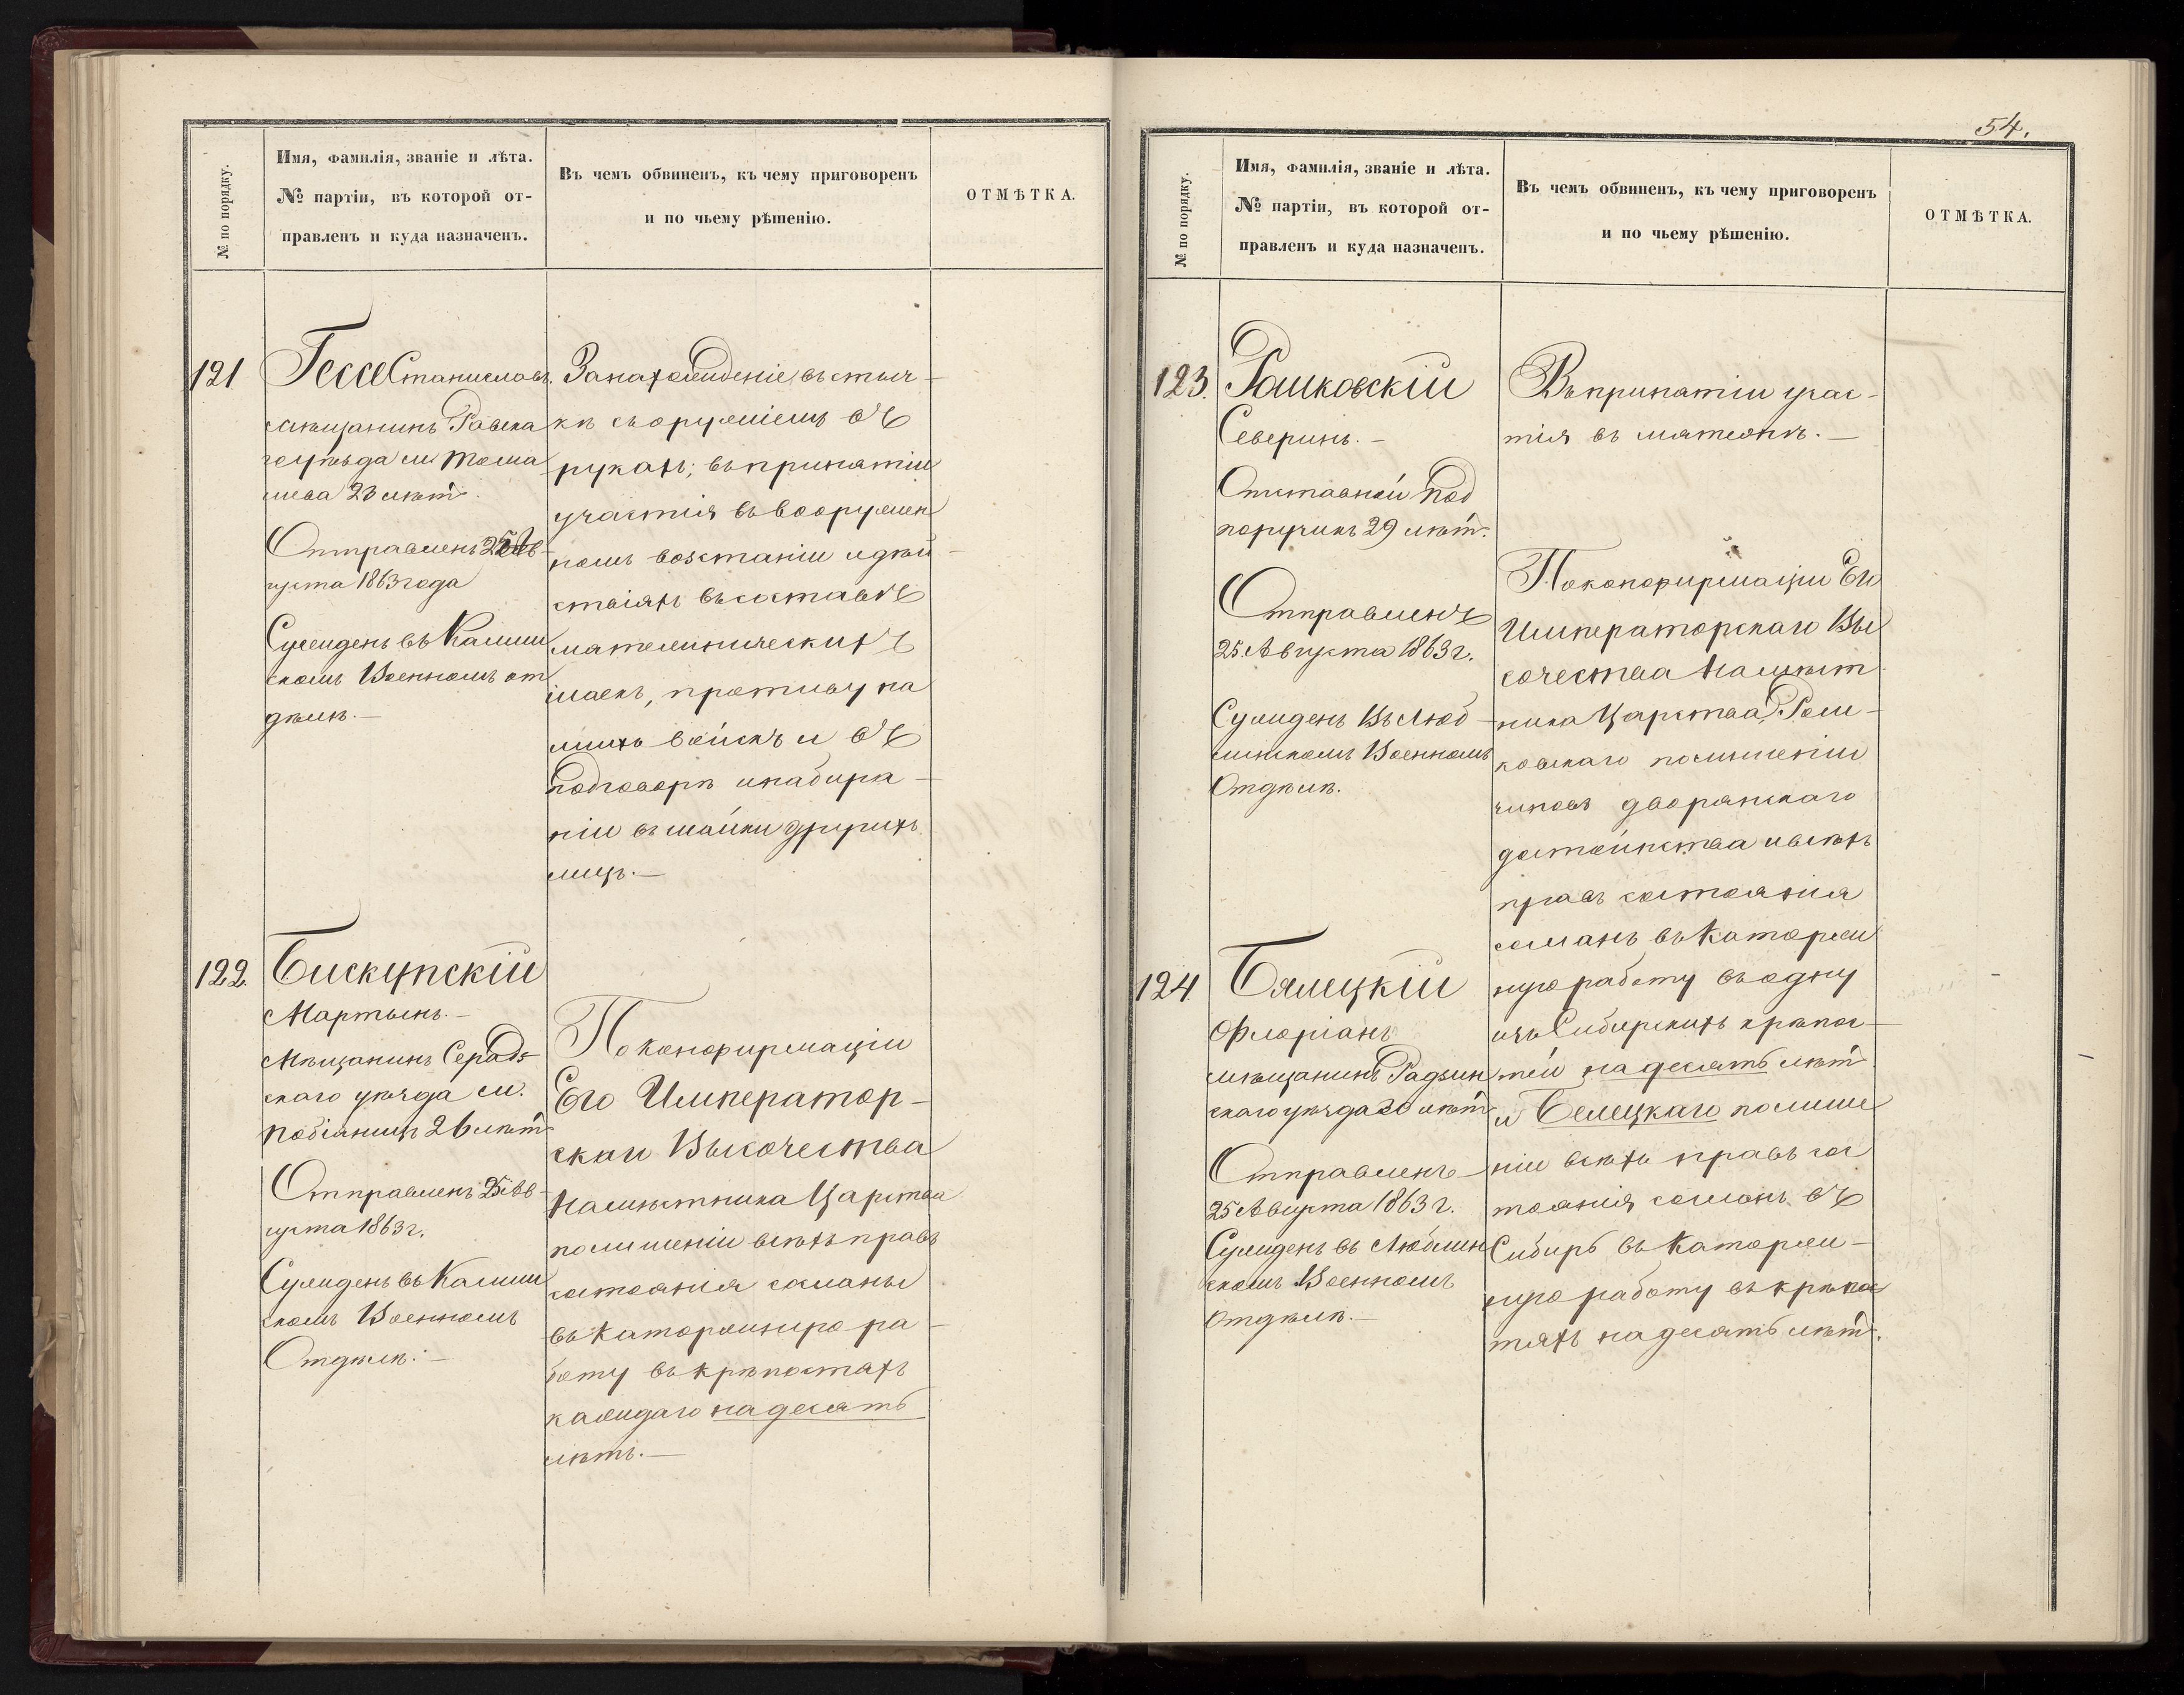 № по порядку.
Имя, фамилія, званіе и лѣта.
№ партіи, въ которой от-
правленъ и куда назначенъ.
Въ чемъ обвиненъ, къ чему приговоренъ
и по чьему рѣшенію.
ОТМѢТКА.
121
Гессе Станиславъ.
мѣщанинъ Равска
го уѣзда м. Тома
шева 23 лѣтъ.
Отправленъ 25 Ав-
густа 1863 года
Сужденъ въ Калиш
скомъ Военномъ от
дѣлѣ.—
За нахожденіе, въ стыч-
кѣ съ оружіемъ въ
рукахъ; въ принятіи
участія въ вооружен
номъ возстаніи и дѣй-
ствіяхъ въ составѣ
мятежническихъ
шаекъ, противу на
шихъ войскъ и въ
подговорѣ и набира-
ніи въ шайки другихъ
лицъ.—
122.
Бискупскій
Мартынъ.—
Мѣщанинъ Серадз-
скаго уѣзда м.
Пабіаницъ 26 лѣтъ
Отправленъ 25 Ав-
густа 1863 г.
Сужденъ въ Калиш
скомъ Военномъ
Отдѣлѣ.—
По конфирмаціи
Его Император-
скаго Высочества
Намѣстника Царства
по лишеніи всѣхъ правъ
состоянія сосланы
въ каторжную ра-
боту въ крѣпостяхъ
каждаго на десять
лѣтъ.—
54.
№ по порядку.
Имя, фамилія, званіе и лѣта.
№ партіи, въ которой от-
правленъ и куда назначенъ.
Въ чемъ обвиненъ, къ чему приговоренъ
и по чьему рѣшенію.
ОТМѢТКА.
123.
Рошковскій
Северинъ.—
Отставной Под
поручикъ 29 лѣтъ.
Отправленъ
25 Августа 1863 г.
Сужденъ въ Люб-
линскомъ Военномъ
Отдѣлѣ.
Въ принятіи учас-
тія въ мятежѣ.—
По конфирмаціи Его
Императорскаго Вы
сочества Намѣст
ника Царства, Рош-
ковскаго по лишеніи
чиновъ дворянскаго
достоинства и всѣхъ
правъ состоянія
сосланъ въ каторж
ную работу въ одну
изъ Сибирскихъ крѣпос-
тей на десять лѣтъ
и Белецкаго по лише
ніи всѣхъ правъ сос
тоянія сосланъ въ
Сибирь въ каторж-
ную работу въ крѣпос
тяхъ на десять лѣтъ.
124.
Бялецкій
Флоріанъ
мѣщанинъ Радзин
скаго уѣзда 20 лѣтъ
Отправленъ
25 Августа 1863 г.
Сужденъ въ Люблин
скомъ Военномъ
Отдѣлѣ.—